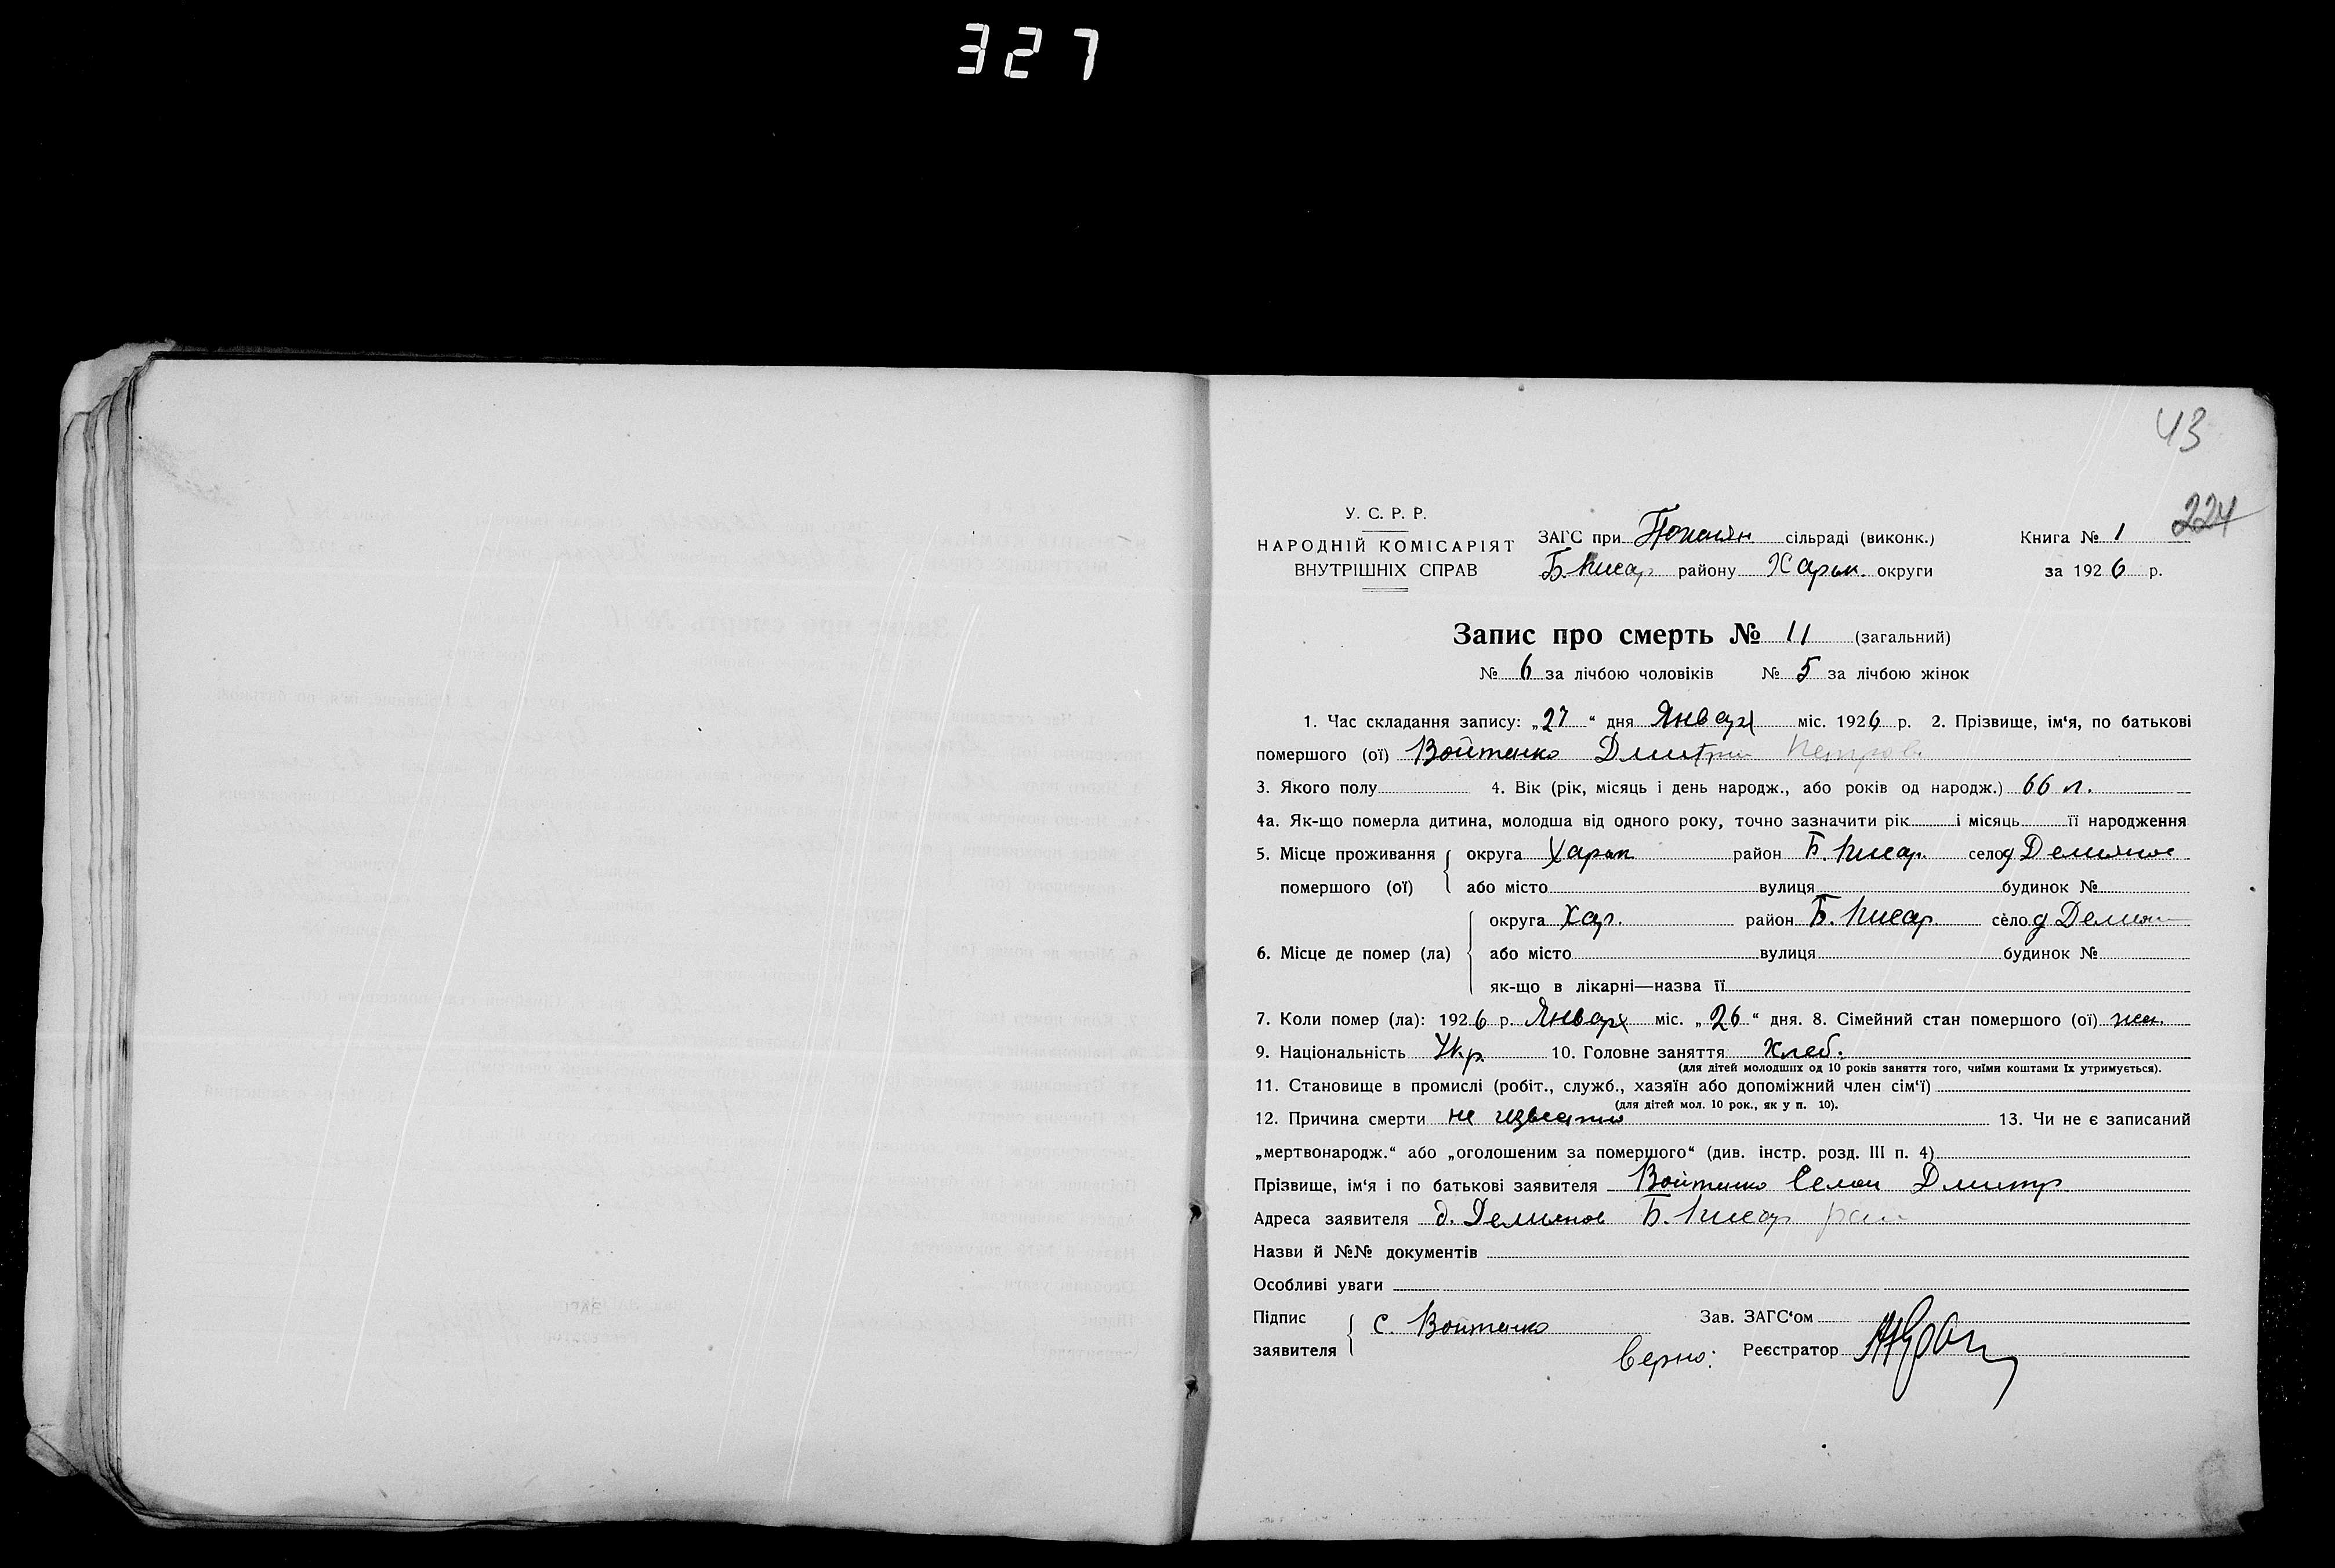 327
43
224
У. С. Р. Р.
НАРОДНІЙ КОМІСАРІЯТ
ВНУТРІШНІХ СПРАВ
ЗАГС при сільраді (виконк.)
Б. Писар району Харьк. округи
Книга № 1
за 1926 р.
Запис про смерть № 11 (загальний)
№ 6 за лічбою чоловіків № 5 за лічбою жінок
1. Час складання запису: „27“ дня Января міс. 1926 р. 2. Прізвище, ім‘я, по батькові
помершого (ої) Войтенко Дмитрий Петров
3. Якого полу 4. Вік (рік, місяць і день народж., або років од народж.) 66 л.
4а. Як-що померла дитина, молодша від одного року, точно зазначити рік і місяць її народження
5. Місце проживання помершого (ої) округа Харьк район Б. Писар. село
або місто вулиця будинок №
6. Місце де помер (ла) округа Хар. район Б. Писар село
або місто вулиця будинок №
як-що в лікарні—назва її
7. Коли помер (ла): 1926 р. Январх міс. „26“ дня. 8. Сімейний стан помершого (ої) жен.
9. Національність Укр 10. Головне заняття Хлеб.
(для дітей молодших од 10 років заняття того, чиїми коштами їх утримується).
11. Становище в промислі (робіт., служб., хазяїн або допоміжний член сім‘ї)
(для дітей мол. 10 рок., як у п. 10).
12. Причина смерти не извесно 13. Чи не є записаний
„мертвонародж.“ або „оголошеним за помершого“ (див. інстр. розд. III п. 4)
Прізвище, ім‘я і по батькові заявителя Войтенко Семен Дмитр
Адреса заявителя д. Б. Писар рай
Назви й №№ документів
Особливі уваги
Підпис заявителя С. Войтенко
Зав. ЗАГС‘ом
Верно: Реєстратор